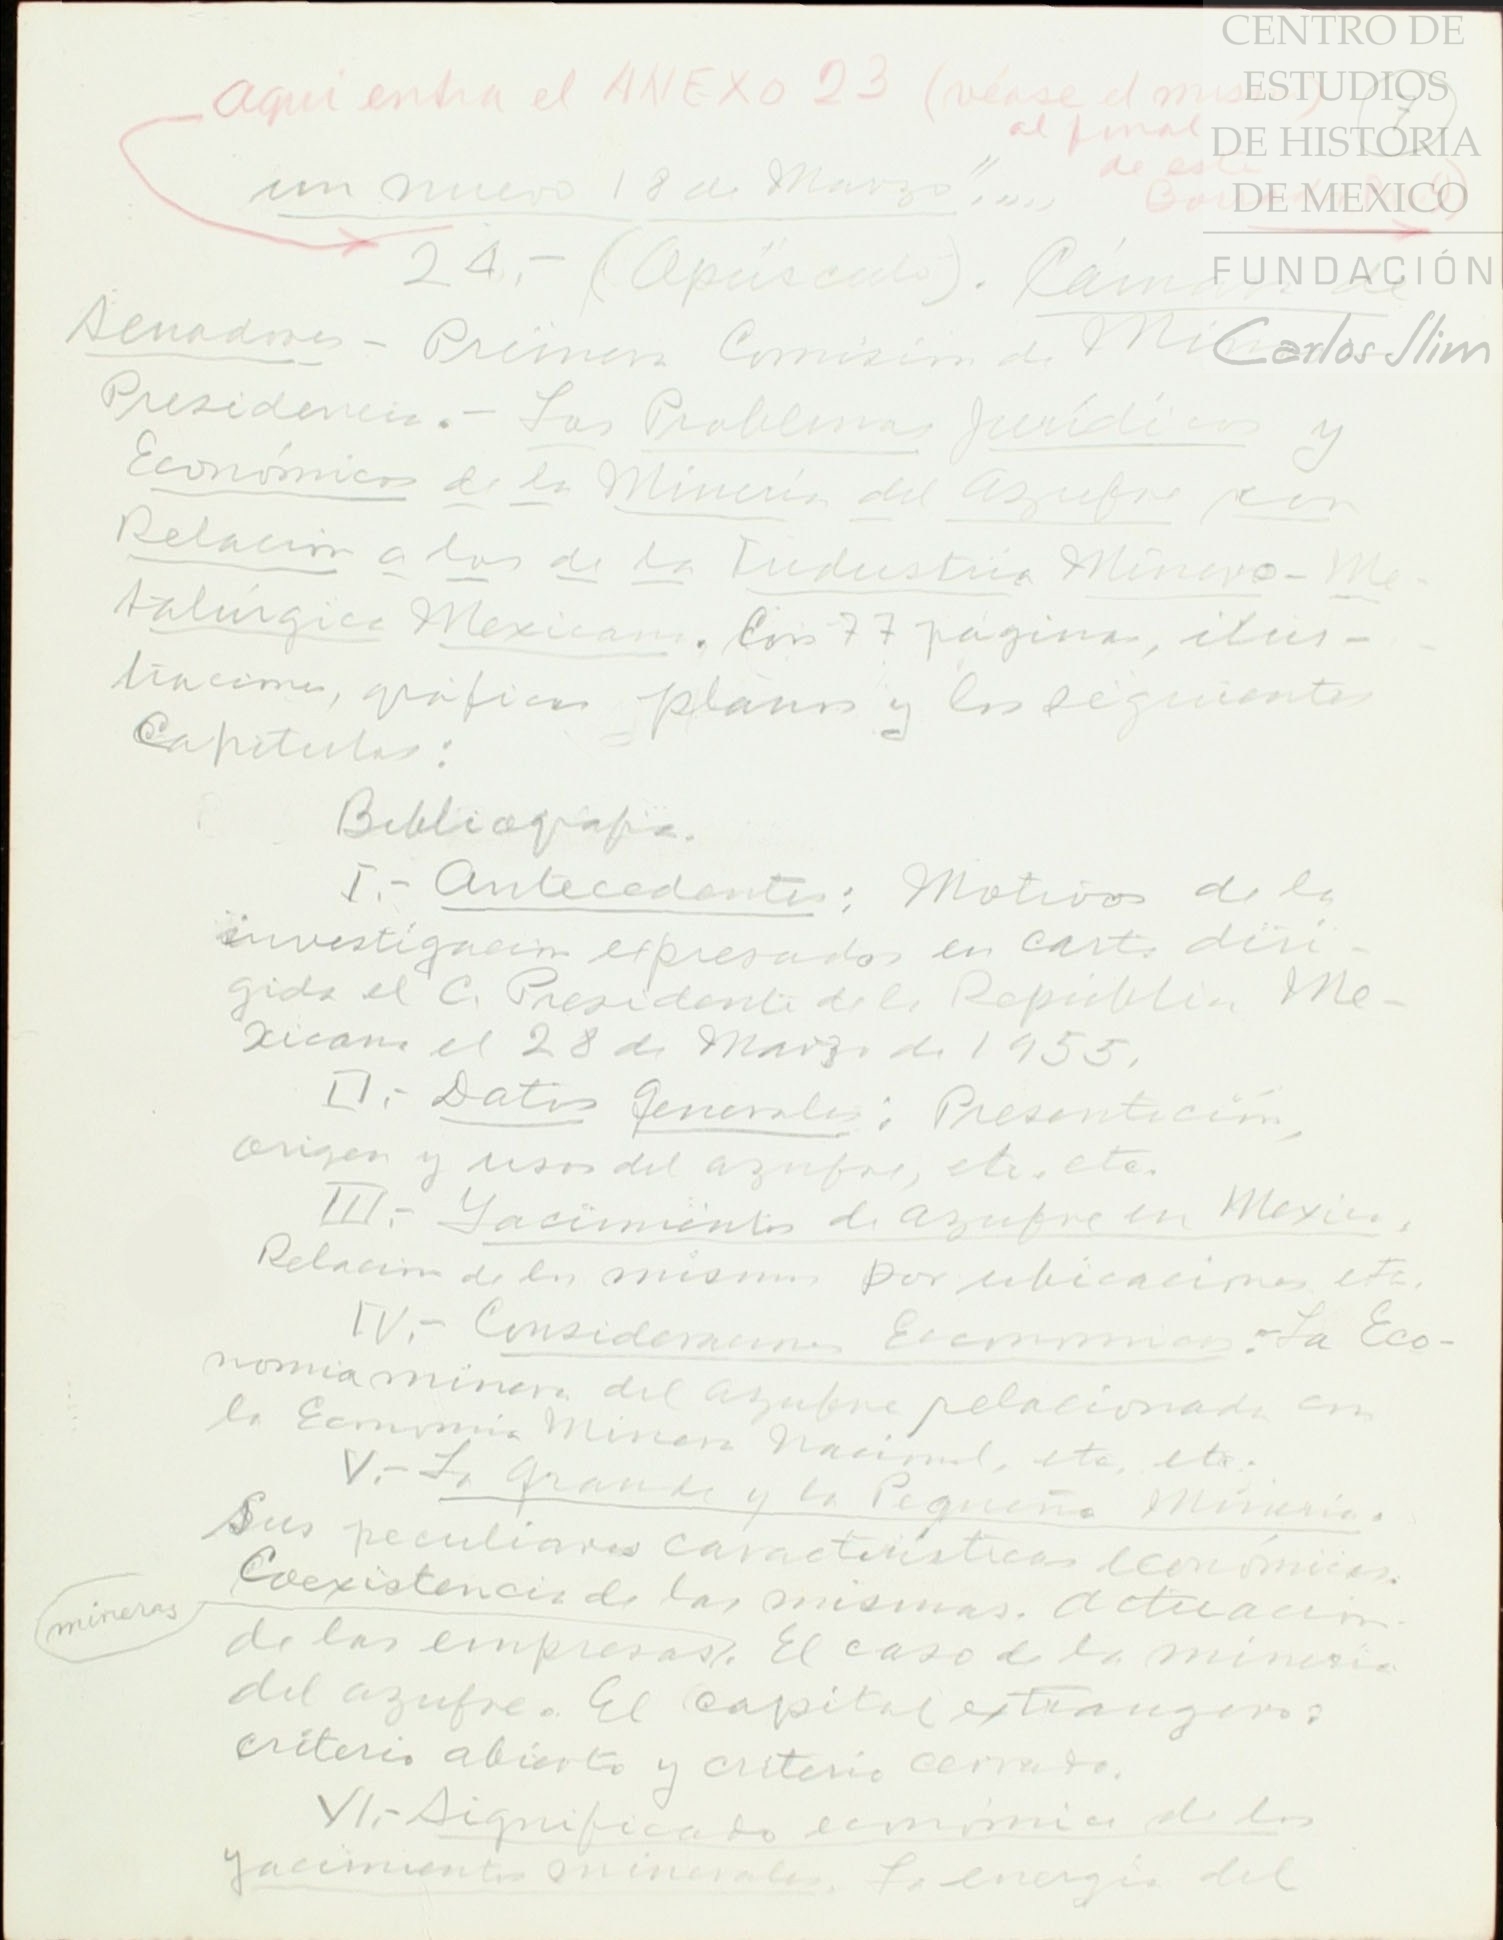 CENTRO DE
ESTUDIOS
DE HISTORIA
DE MEXICO
FUNDACIÓN
Carlos Slim
Aquí entra el ANEXO 23 (véase el
al final
de este
(7)
un nuevo 18 de Marzo"....
24.- (Opúsculo). Cámara de
Senadores - Primera Comisión de
Presidencia.- Los Problemas Jurídicos y
Económicos de la Minería del Azufre con
Relación a los de la Industria Minero-Me-
talúrgica Mexicana. Con 77 páginas, ilus-
traciones, gráficas planos y los siguientes
Capítulos:
Bibliografía.
I.- Antecedentes: Motivos de la
investigación expresados en carta diri-
gida el C. Presidente de la República Me-
xicana el 28 de Marzo de 1955.
II.- Datos Generales: Presentación,
origen y usos del azufre, etc. etc.
III.- Yacimientos de azufre en Mexico.
Relación de los mismos por ubicaciones etc.
IV.- Consideraciones Economicas:- La Eco-
nomia minera del azufre relacionada con
la Economía Minera Nacional, etc. etc.
V.- La Grande y la Pequeña Minería.
Sus peculiares características económicas.
Coexistencia de las mismas. Actuación
mineras
de las empresas. El caso de la minería
del azufre. El capital extrangero:
criterio abierto y criterio cerrado.
VI.- Significado económico de los
yacimientos minerales. La energía del